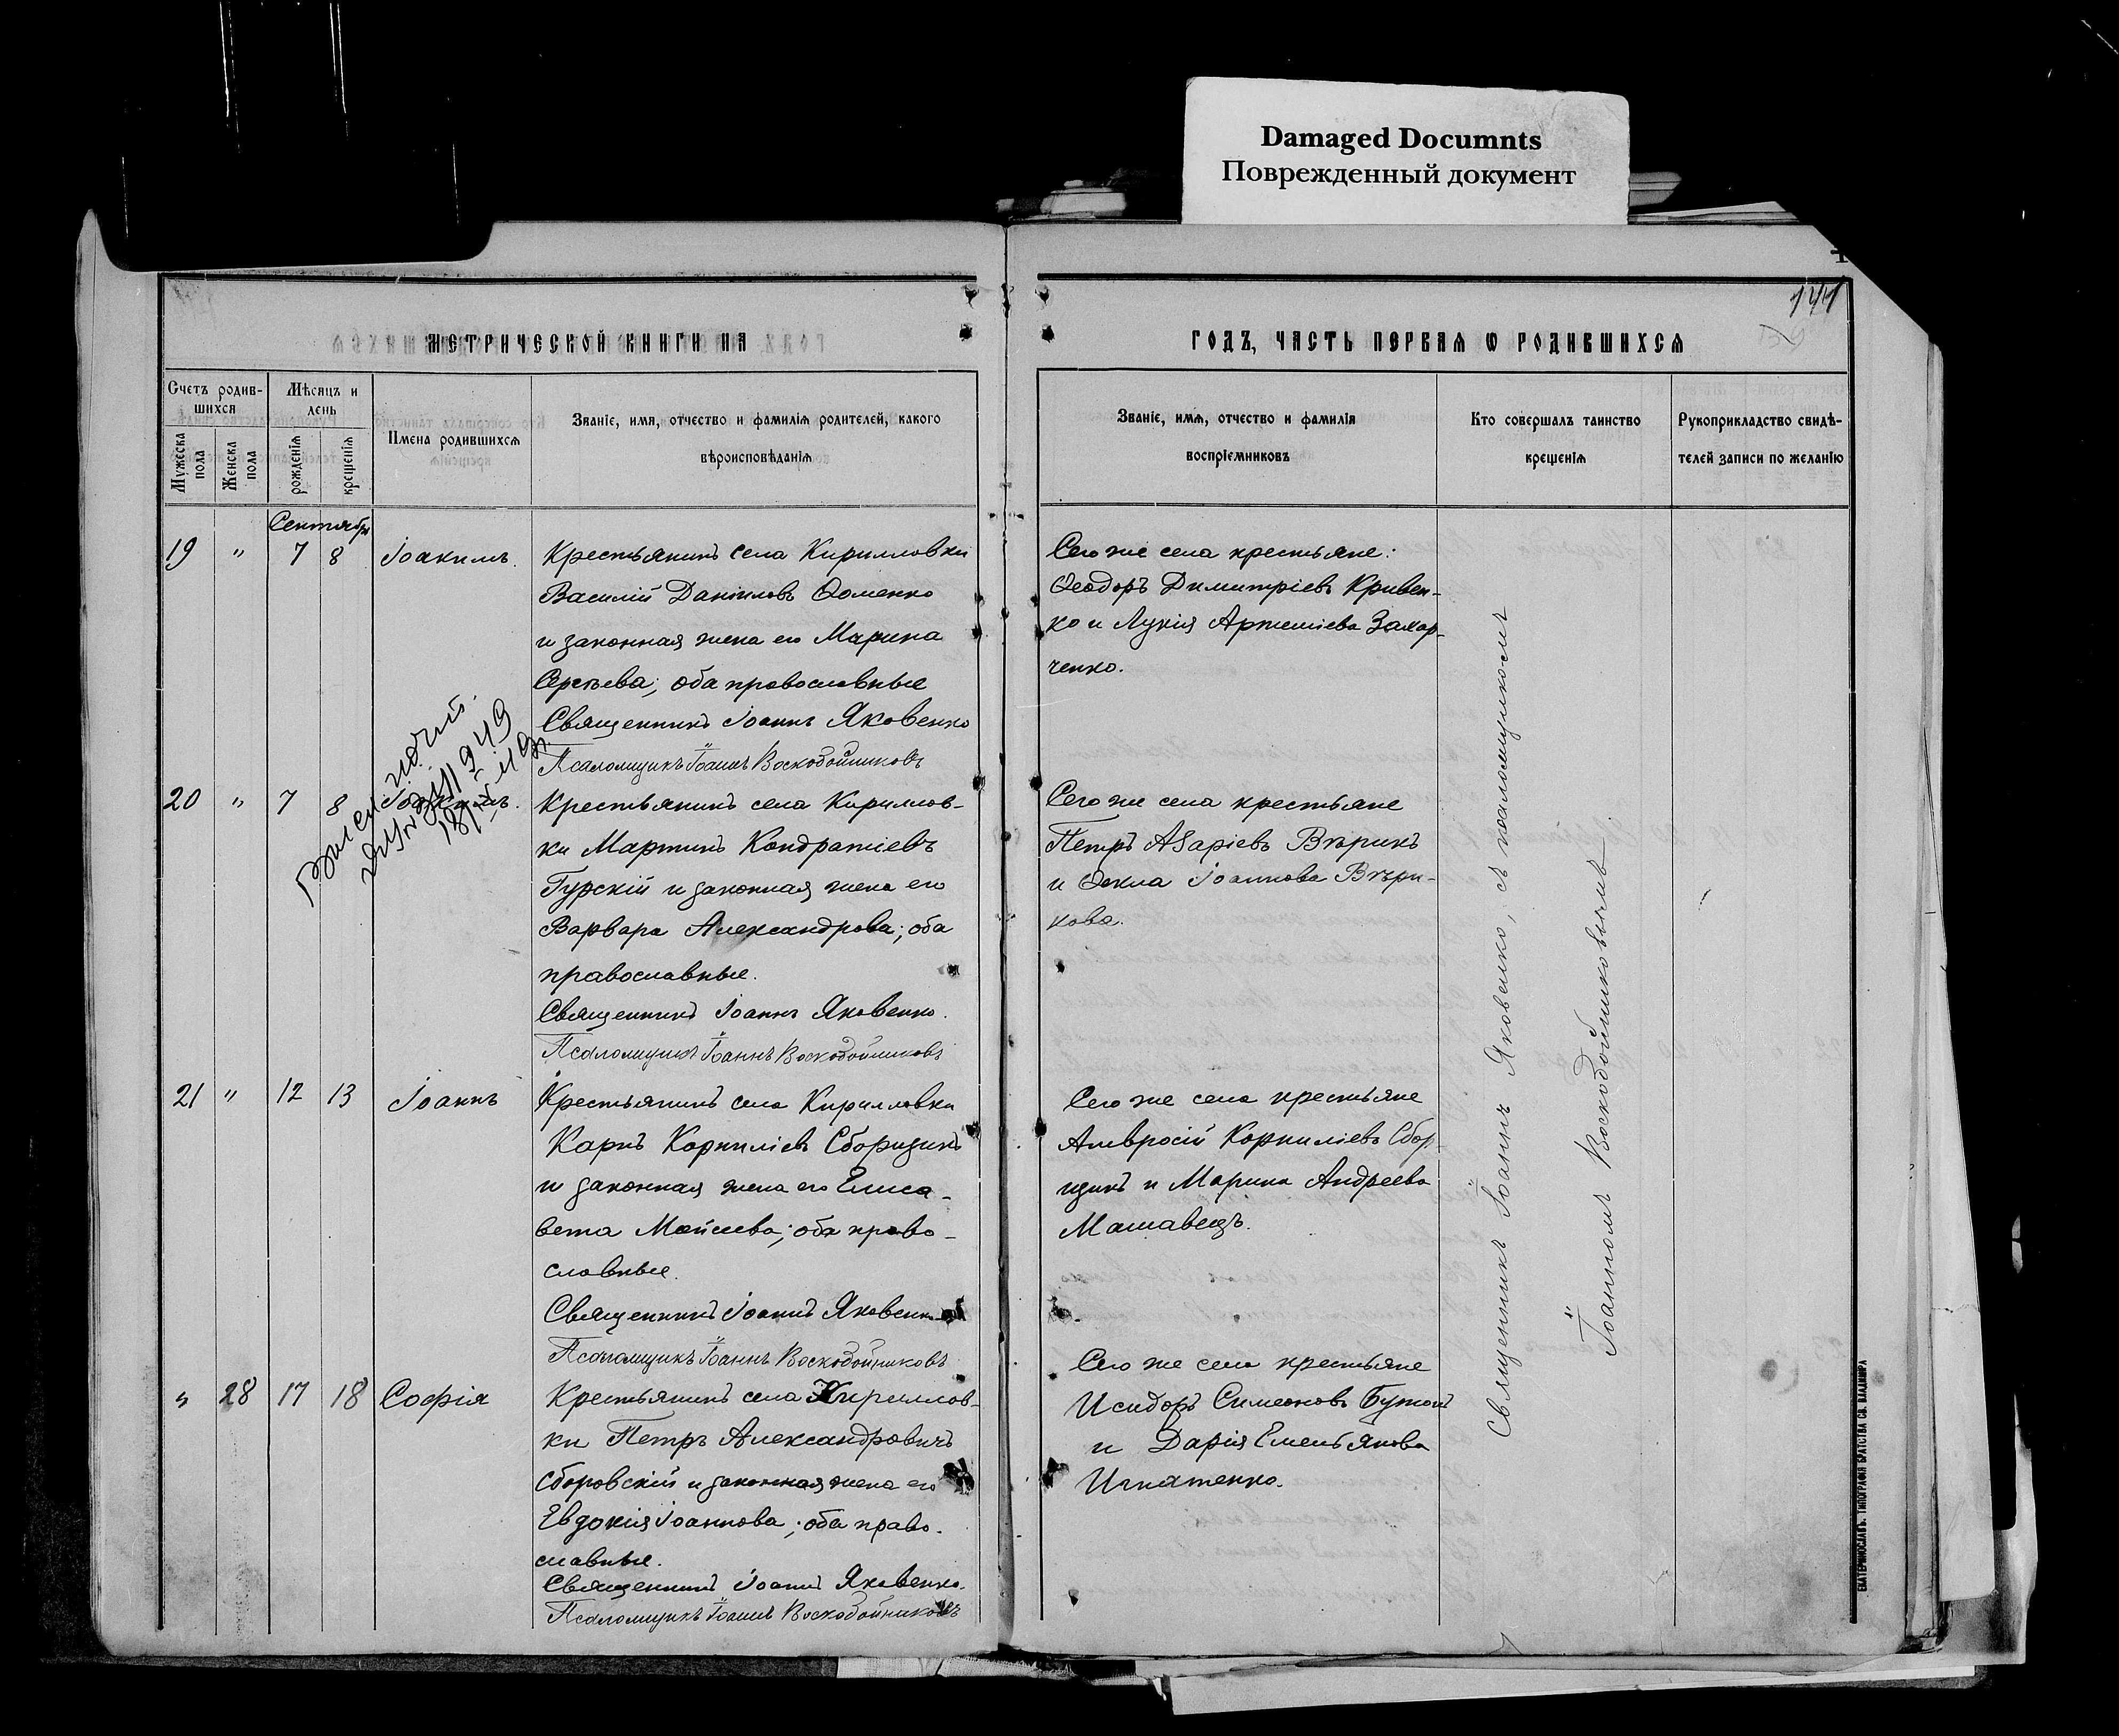 Damaged Documnts
Поврежденный документ
МЕТРИЧЕСКОЙ КНИГИ НА
ГОДЪ, ЧАСТЬ ПЕРВАЯ О РОДИВШИХСЯ
Счетъ родив-
шихся
Мужеска пола
Женска пола
Мѣсяцъ и
день
рожденія
крещенія
Имена родившихся
Званіе, имя, отчество и фамилія родителей, какого
вѣроисповѣданія
Званіе, имя, отчество и фамилія
воспріемниковъ
Кто совершалъ таинство
крещенія
Рукоприкладство свидѣ-
телей записи по желанію
Сентябрь
19 " 7 8 Іоакимъ.
Крестьянинъ села Кирилловки
Василій Даніиловъ Ѳоменко
и законная жена его Марина
Сергѣева; оба православные
Священникъ Іоаннъ Яковенко
Псаломщикъ Іоаннъ Воскобойниковъ
Сего же села крестьяне:
Ѳеодоръ Димитріевъ Кривен-
ко и Лукія Артеміева Захар-
ченко.
20 " 7 8 Іоакимъ.
Крестьянинъ села Кириллов-
ки Мартинъ Кондратіевъ
Гурскій и законная жена его
Варвара Александрова; оба
православные.
Священникъ Іоаннъ Яковенко.
Псаломщикъ Іоаннъ Воскобойниковъ
Сего же села крестьяне
Петръ Азаріевъ Вѣрикъ
и Ѳекла Іоаннова Вѣри-
кова.
21 " 12 13 Іоаннъ
Крестьянинъ села Кирилловки
Карпъ Корниліевъ Сборщикъ
и законная жена его Елиса-
вета Моѵсеева; оба право-
славные.
Священникъ Іоаннъ Яковенко
Псаломщикъ Іоаннъ Воскобойниковъ
Сего же села крестьяне
Амвросій Корниліевъ Сбор-
щикъ и Марина Андреева
Машавецъ.
" 28 17 18 Софія
Крестьянинъ села Кириллов-
ки Петръ Александровичъ
Сборовскій и законная жена его
Евдокія Іоаннова; оба право-
славные.
Священникъ Іоаннъ Яковенко.
Псаломщикъ Іоаннъ Воскобойниковъ
Сего же села крестьяне
Исидоръ Симеоновъ
и Дарія Емельянова
Игнатенко.
Священникъ Іоаннъ Яковенко, съ псаломщикомъ
Іоанномъ Воскобойниковымъ
ЕКАТЕРИНОСЛАВЪ. ТИПОГРАФІЯ БРАТСТВА СВ. ВЛАДИМІРА